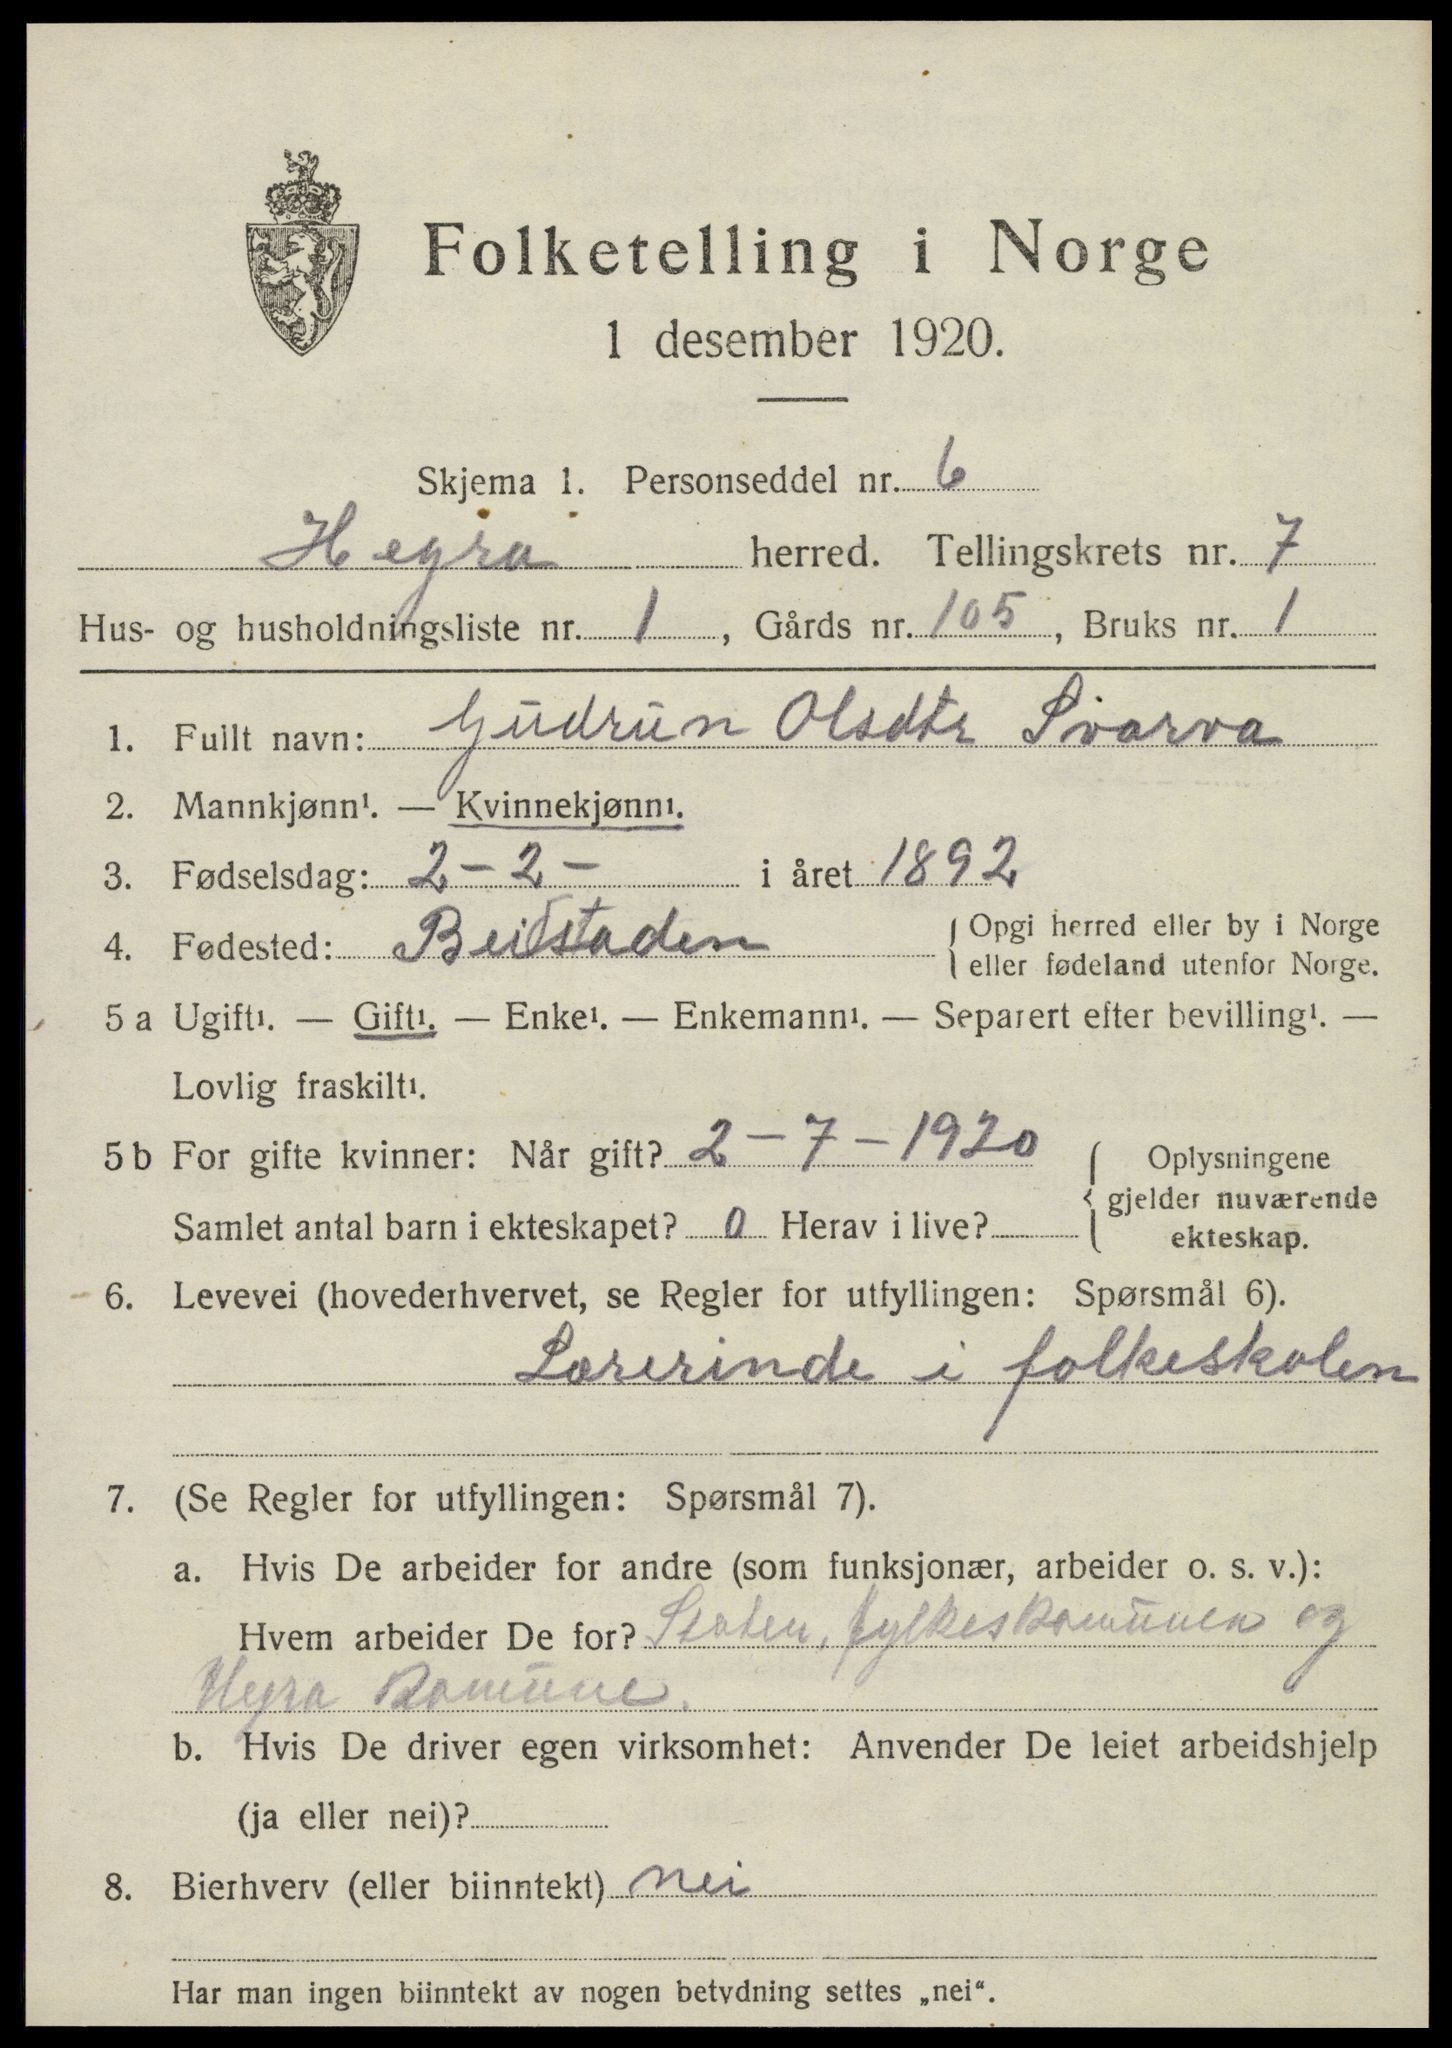 Folketelling i Norge
1 desember 1920.
Skjema 1. Personseddel nr. 6
Hegra herred. Tellingskrets nr. 7
Hus- og husholdningsliste nr. 1, Gårds nr. 105, Bruks nr. 1
1. Fullt navn: Gudrun Olsdtr Svarva
2. Mannkjønn¹. — Kvinnekjønn¹.
3. Fødselsdag: 2 - 2 - i året 1892
4. Fødested: Beitstaden {Opgi herred eller by i Norge
eller fødeland utenfor Norge.
5 a Ugift¹. — Gift¹. — Enke¹. — Enkemann¹. — Separert efter bevilling¹. —
Lovlig fraskilt¹.
5 b For gifte kvinner: Når gift? 2 - 7 - 1920
Samlet antal barn i ekteskapet? 0 Herav i live?
{Oplysningene
gjelder nuværende
ekteskap.
6. Levevei (hovederhvervet, se Regler for utfyllingen: Spørsmål 6).
Lærerinde i folkeskolen
7. (Se Regler for utfyllingen: Spørsmål 7).
a. Hvis De arbeider for andre (som funksjonær, arbeider o. s. v.):
Hvem arbeider De for? Staten, fylkeskomunen og
Hegra komune.
b. Hvis De driver egen virksomhet: Anvender De leiet arbeidshjelp
(ja eller nei)?
8. Bierhverv (eller biinntekt) nei
Har man ingen biinntekt av nogen betydning settes „nei“.